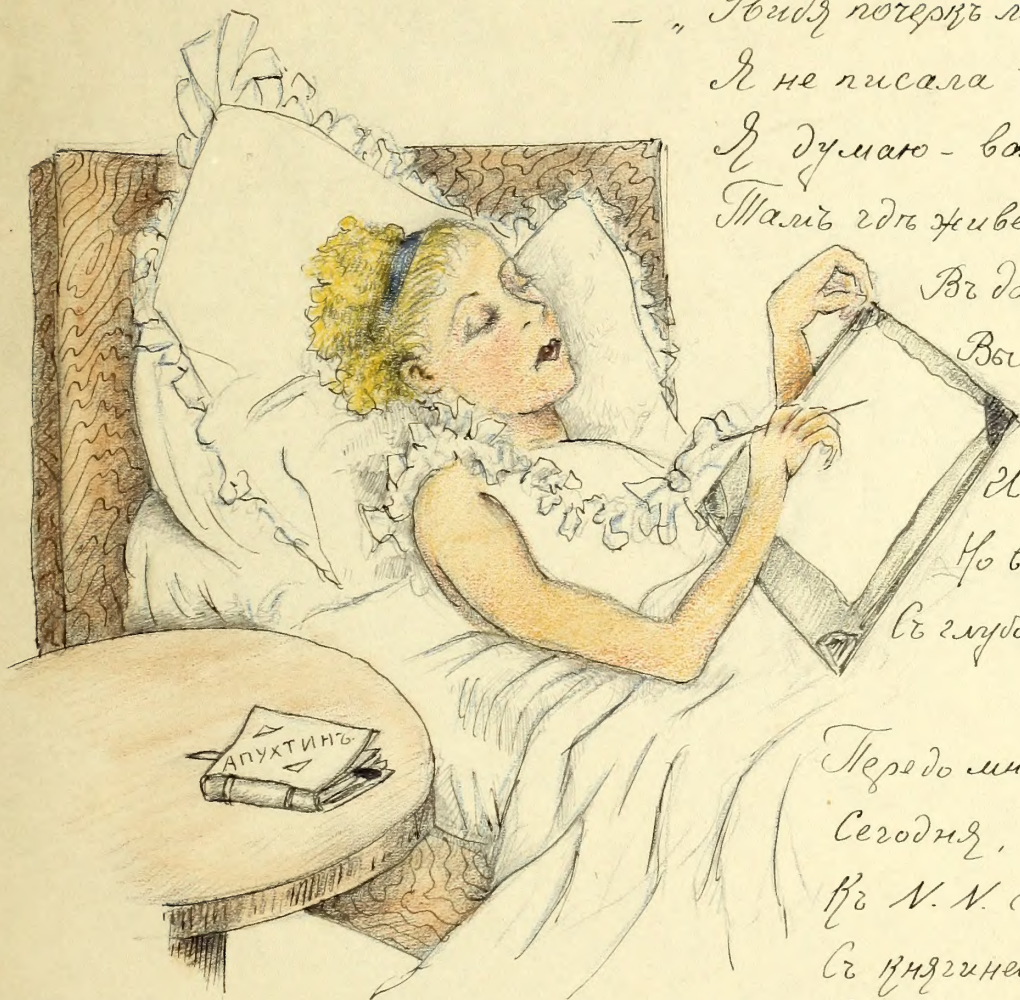 — „ Увидя почеркъ м
Я не писала
Я думаю - ва
Тамъ гдѣ живе
Въ до
Вы
И
Но в
Съ глубо
АПУХТИНЪ.
Передо мн
Сегодня,
Къ N. N. с
Съ княгиней